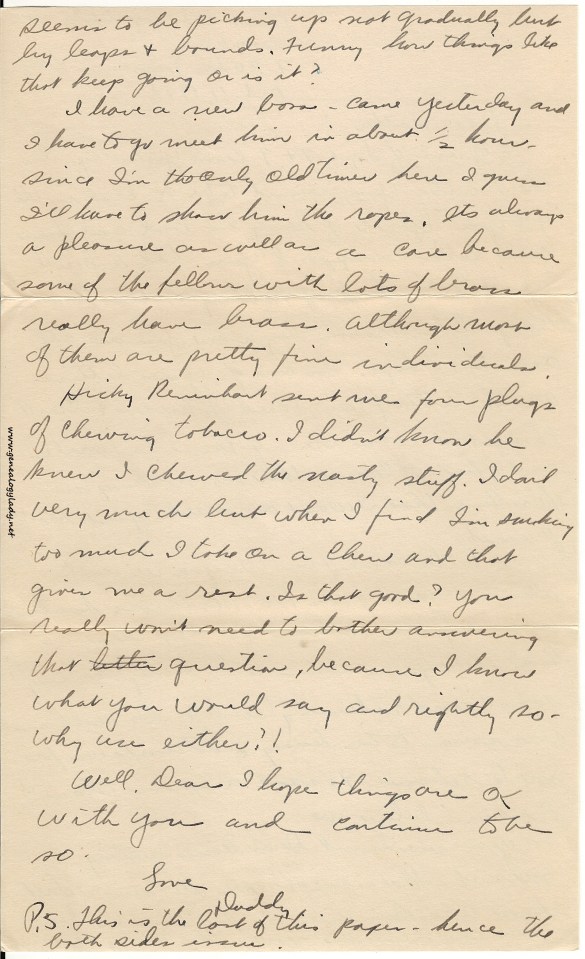 seems to be picking up not gradually but
by leaps & bounds. Funny how things like
that keep going or is it?
I have a new boss - came yesterday and
I have to go meet him in about ½ hour -
since I'm the only old timer here I guess
I'll have to show him the ropes. Its always
a pleasure as well as a care because
some of the fellows with lots of brass
really have brass. Although most
of them are pretty fine individuals.
Hicky Reinhart sent me four plugs
of chewing tobacco. I didn't know he
knew I chewed the nasty stuff. I don't
very much but when I find I'm smoking
too much I take on a chew and that
gives me a rest. Is that good? You
really won't need to bother answering
that letter question, because I know
what you would say and rightly so -
why use either?!
Well. Dear I hope things are OK
with you and continue to be
so.
Love
Daddy
P.S. This is the last of this paper - hence the
both sides issue.
www.genealogylady.net